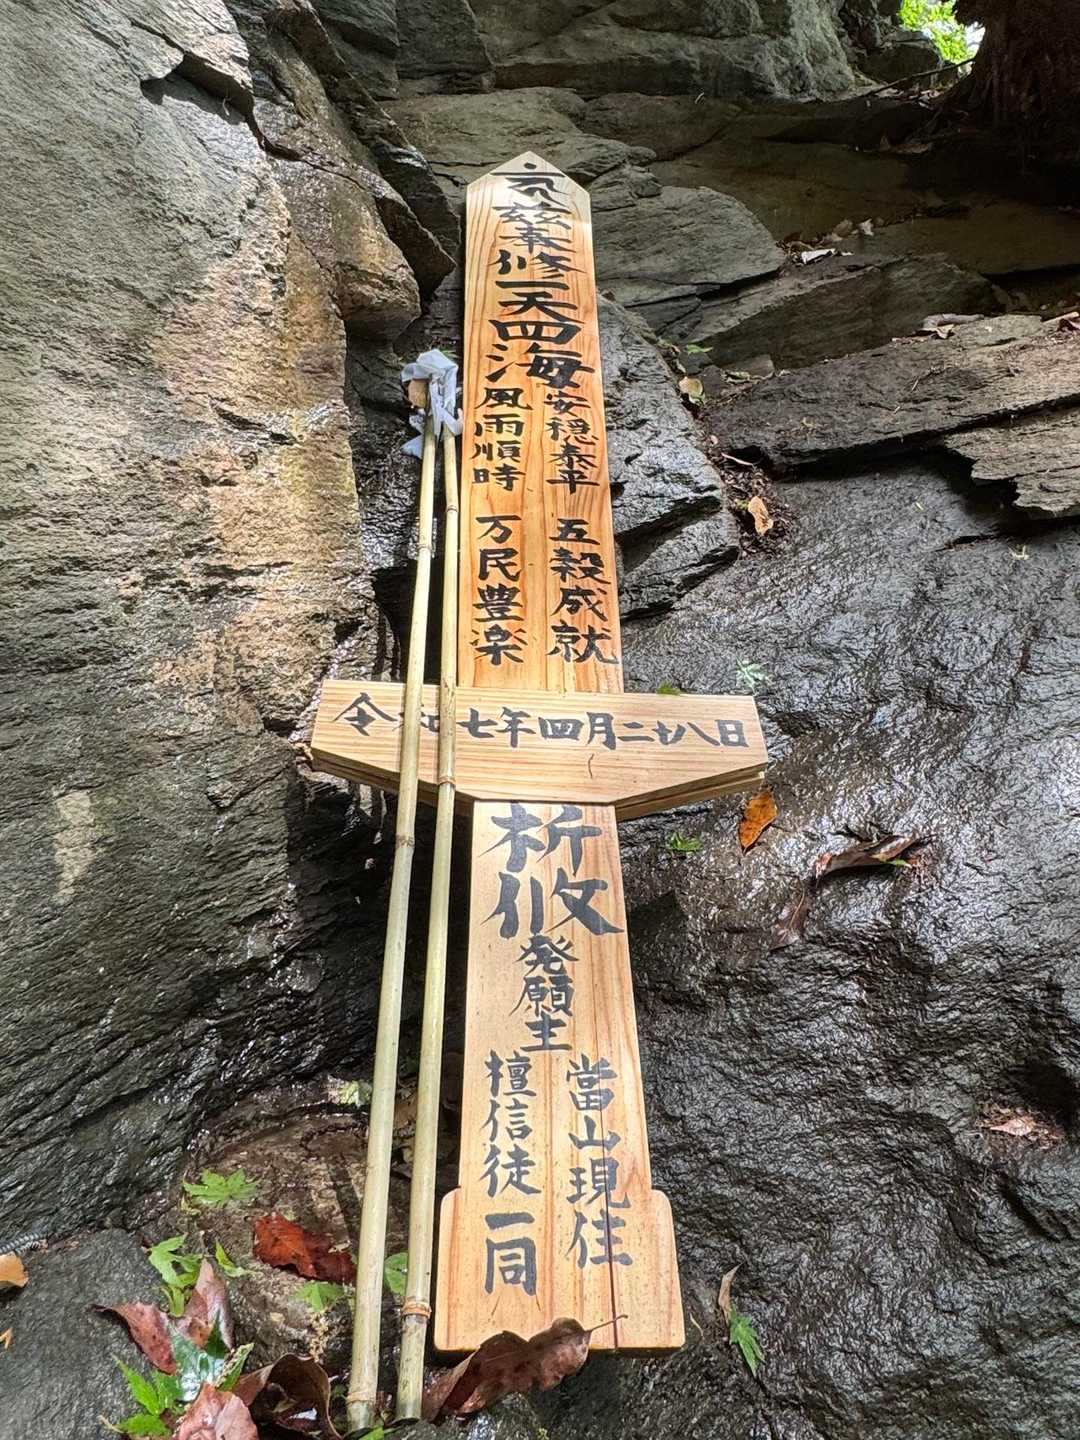 慈奉修一天四海
安穏泰平 五穀成就
風雨順時 万民豊楽
令和七年四月二十八日
祈攸
発願主
當山現住
檀信徒一同